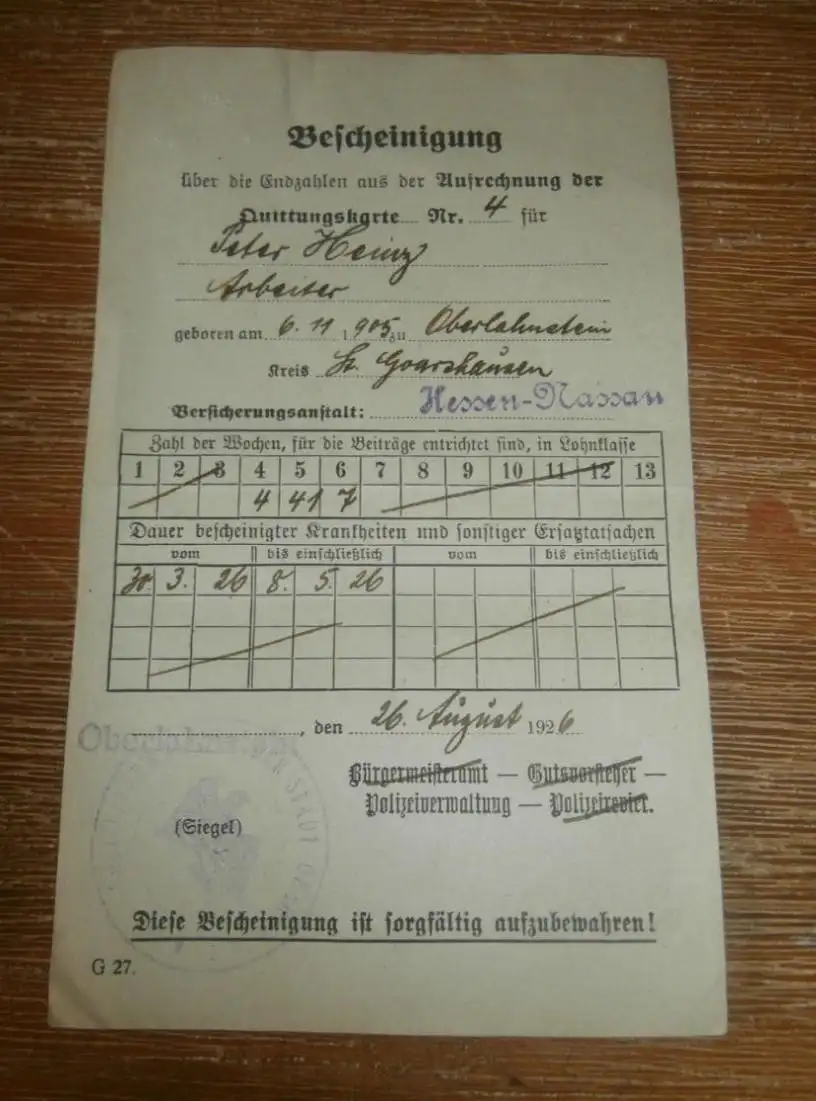 Bescheinigung
über die Endzahlen aus der Aufrechnung der
Quittungskarte Nr. 4 für
Peter Heinz
Arbeiter
geboren am 6. 11 1905 zu Oberlahnstein
Kreis St. Goarshausen
Versicherungsanstalt: Hessen-Nassau
Zahl der Wochen, für die Beiträge entrichtet sind, in Lohnklasse
1 2 3 4 5 6 7 8 9 10 11 12 13
4 41 7
Dauer bescheinigter Krankheiten und sonstiger Ersatztatsachen
vom bis einschließlich vom bis einschließlich
30. 3. 26 8. 5. 26
Oberlahnstein, den 26. August 1926
Bürgermeisteramt — Gutsvorsteher —
Polizeiverwaltung — Polizeirevier.
(Siegel)
STADT
Diese Bescheinigung ist sorgfältig aufzubewahren!
G 27.